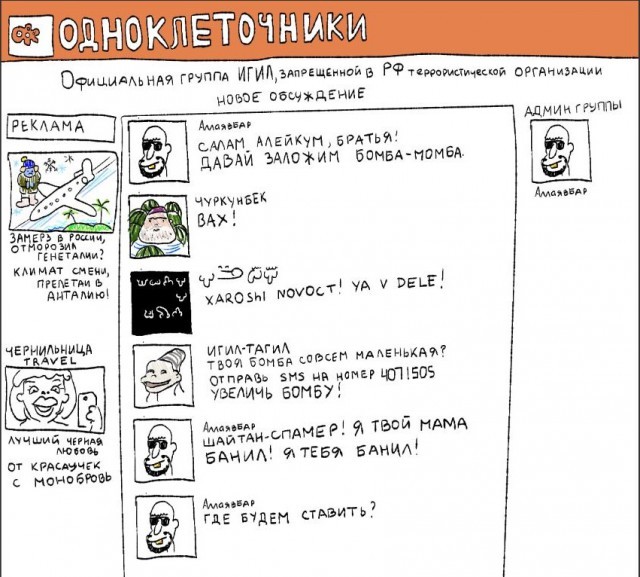 ОДНОКЛЕТОЧНИКИ
ОФИЦИАЛЬНАЯ ГРУППА ИГИЛ, ЗАПРЕЩЕННОЙ В РФ ТЕРРОРИСТИЧЕСКОЙ ОРГАНИЗАЦИИ
НОВОЕ ОБСУЖДЕНИЕ
РЕКЛАМА
ЗАМЕРЗ В РОССИИ,
ОТМОРОЗИЛ
ГЕНЕТАЛИИ?
КЛИМАТ СМЕНИ,
ПРЕЛЕТАЙ В
АНТАЛИЮ!
ЧЕРНИЛЬНИЦА
TRAVEL
ЛУЧШИЙ ЧЕРНАЯ
ЛЮБОВЬ
ОТ КРАСАУЧЕК
С МОНОБРОВЬ
АЛЛАЯВБАР
САЛАМ АЛЕЙКУМ, БРАТЬЯ!
ДАВАЙ ЗАЛОЖИМ БОМБА-МОМБА.
ЧУРКУНБЕК
ВАХ!
XAROSHI NOVOCT! YA V DELE!
ИГИЛ-ТАГИЛ
ТВОЯ БОМБА СОВСЕМ МАЛЕНЬКАЯ?
ОТПРАВЬ SMS НА НОМЕР 4071505
УВЕЛИЧЬ БОМБУ!
АЛЛАЯВБАР
ШАЙТАН-СПАМЕР! Я ТВОЙ МАМА
БАНИЛ! Я ТЕБЯ БАНИЛ!
АЛЛАЯВБАР
ГДЕ БУДЕМ СТАВИТЬ?
АДМИН ГРУППЫ
АЛЛАЯВБАР